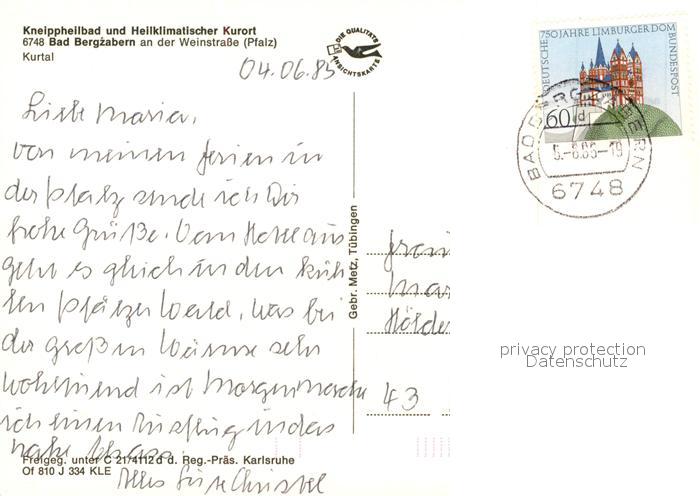 Kneippheilbad und Heilklimatischer Kurort
6748 Bad Bergzabern an der Weinstraße (Pfalz)
Kurtal
DIE QUALITÄTS
ANSICHTSKARTE
04.06.85
Liebe Maria,
von meinen Ferien in
der Pfalz sende ich Dir
frohe Grüße. Vom Hotel aus
geht es gleich in den küh-
len Pfälzer Wald, was bei
der großen Wärme sehr
wohltuend ist. Morgen mache
ich einen Ausflug in das
nahe Elsass.
Alles Gute Christel
Freigeg. unter C 21/4112 d d. Reg.-Präs. Karlsruhe
Of 810 J 334 KLE
Gebr. Metz, Tübingen
750 JAHRE LIMBURGER DOM
DEUTSCHE
BUNDESPOST
60
BAD BERGZABERN
6748
Frau
43
privacy protection
Datenschutz